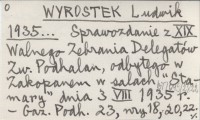 0
WYROSTEK Ludwik
1935... Sprawozdanie z XIX
Walnego Zebrania Delegatów
Zw. Podhalan, odbytego w
Zakopanem w salach "Sta-
mary" dnia 3 VIII 1935 r.
- Gaz. Podh. 23, nry 18, 20, 22.